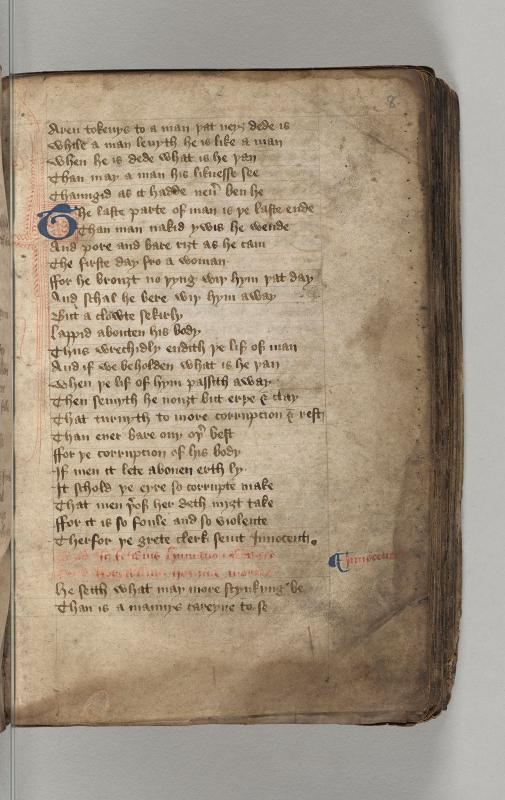 8
Aren tokenys to a man þat neyȝ dede is
While a man leuyth he is like a man
When he is dede what is he þan
Than may a man his liknesse see
Chaungid as it hadde neuer ben he
The laste parte of man is þe laste ende
Than man nakid ywis he wende
And pore and bare riȝt as he cam
The firste day fro a woman
ffor he brouȝt no þyng wiþ hym þat day
And schal he bere wiþ hym away
But a clowte sekirly
Lappid abouten his body
Thus wrechidly endith þe lif of man
And if we beholden what is he þan
When þe lif of hym passith away
Then semyth he nouȝt but erþe & clay
That turnyth to more corrupcion &
Than euer bare ony oþer best
ffor þe corrupcion of his body
If men it lete abouen erth ly
It schold þe eyre so corrupte make
That men þerof her deth miȝt take
ffor it is so foule and so violente
Therfor þe grete clerk seiit Innocent
Innocent
He seith what may more stynkyng be
Than is a mannys careyne to se